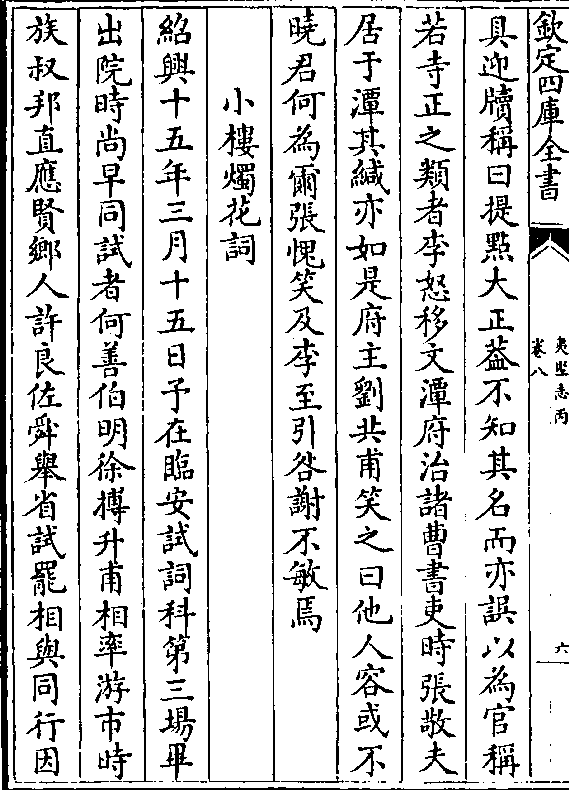 欽定四庫全書
夷堅志丙
卷八
六
具迎牘稱曰提㸃大正葢不知其名而亦誤以為官稱
若寺正之類者李怒移文潭府治諸曹書吏時張敬夫
居于潭其緘亦如是府主劉共甫笑之曰他人容或不
曉君何為爾張愧笑及李至引咎謝不敏焉
小樓燭花詞
紹興十五年三月十五日予在臨安試詞科第三場畢
出院時尚早同試者何善伯明徐摶升甫相率游市時
族叔邦直應賢鄉人許良佐舜舉省試罷相與同行因